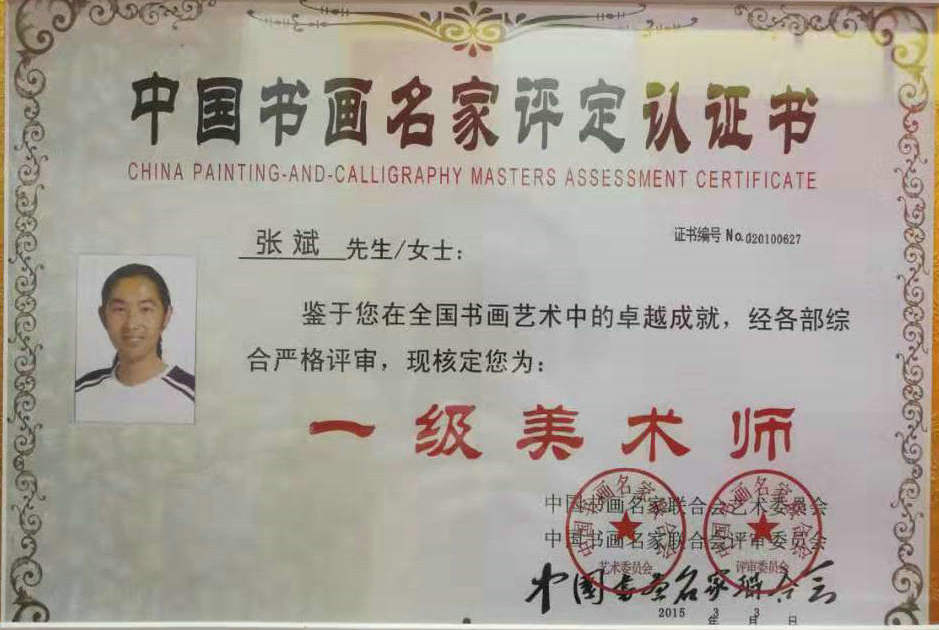 中国书画名家评定认证书
CHINA PAINTING-AND-CALLIGRAPHY MASTERS ASSESSMENT CERTIFICATE
证书编号 No.020100627
张斌 先生/女士：
鉴于您在全国书画艺术中的卓越成就，经各部综
合严格评审，现核定您为：
一级美术师
中国书画名家联合会艺术委员会
中国书画名家联合会评审委员会
中国书画名家联合会
艺术委员会
中国书画名家联合会
评审委员会
中国书画名家联合会
2015年3月3日